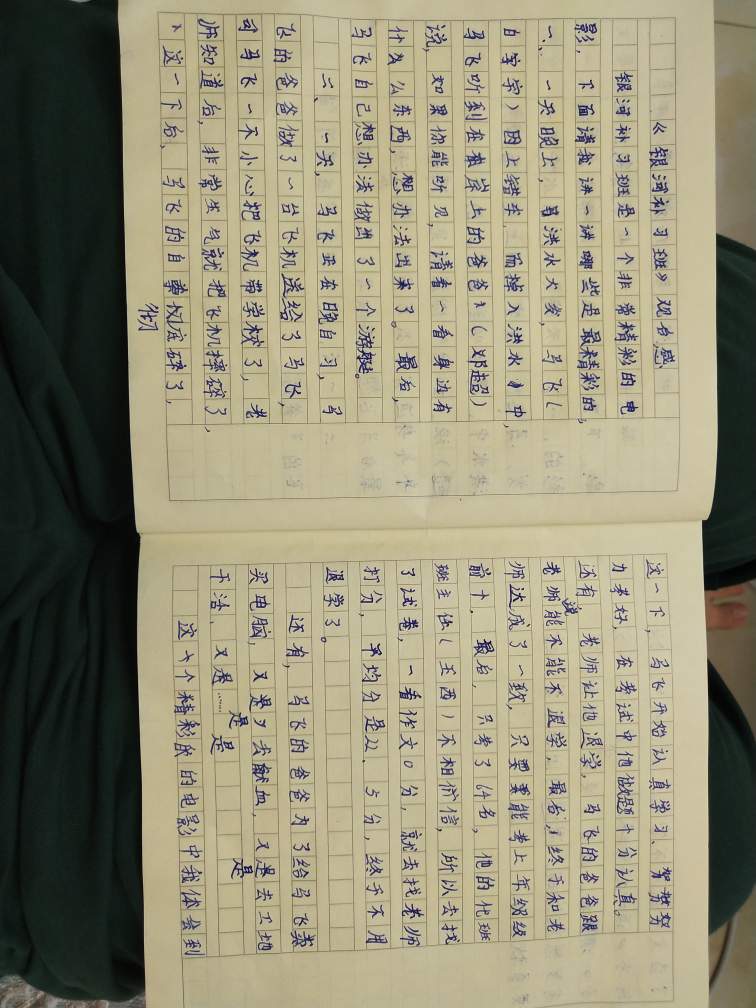 《银河补习班》观后感
银河补习班是一个非常精彩的电
影，下面请我讲一讲哪些是最精彩的，
一、一天晚上，洪水大发，马飞（
白宇字）因上错车，而掉入洪水中，
马飞听到在岸上的爸爸（邓超）
说，如果你能听见，请看一看身边有
什么东西，想办法出来了。最后，
马飞自己想办法做出了一个游艇。
二、一天，马飞正在晚自习，马
飞的爸爸做了一台飞机送给了马飞，
可马飞一不小心把飞机带学校了，老
师知道后，非常生气就把飞机摔碎了，
这一下后，马飞的自尊仿底碎了，
彻
这一下，马飞开始认真学习、努努努
力考好，在考试中他做题十分认真。
还有，老师让他退学，马飞的爸爸跟
老师说能不能不退学，最后，终于和老
师达成了一致，只要能考上年级级
前十，最后，只考了64名，他的代班
班主任（王西）不相信，所以去找
了试卷，一看作文0分，就去找老师
打分，平均分是22．5分，终于不用
退学了。
还有，马飞的爸爸为了给马飞卖
买电脑，又是去献血，又是去工地
干活，又是……
是 是 是
这个精彩的的电影中我体会到